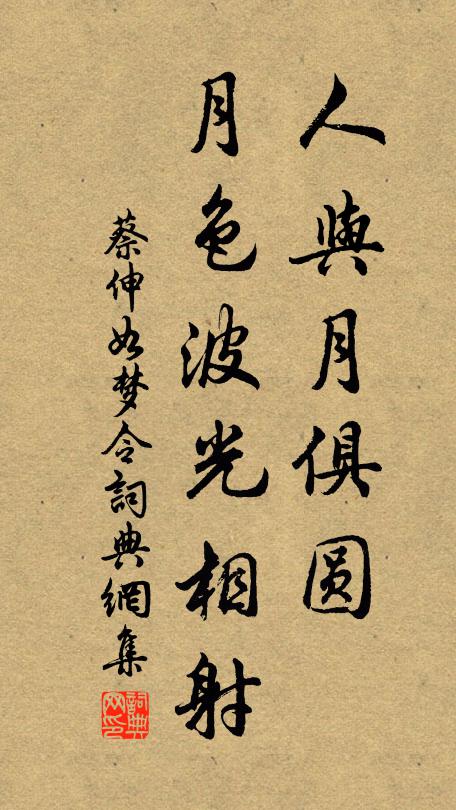 人與月俱圓
月色波光相射
蔡伸如梦令詞典網集
詞典网印